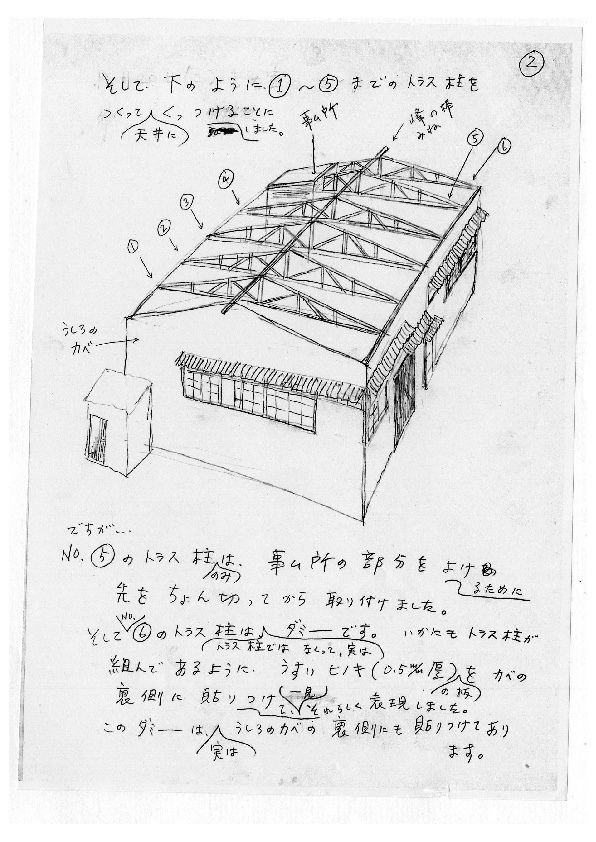 ②
そして、下のように、①～⑤までのトラス柱を
つくって、くっつけることに
天井に
しました。
事ム所
峰の棒
みね
⑤
⑥
④
③
②
①
うしろの
カベ
ですが…
NO.⑤のトラス柱は、事ム所の部分をよけ
のみ
るために
先をちょん切ってから取り付けました。
NO.
そして⑥のトラス柱は、ダミーです。いかにもトラス柱が
トラス柱ではなくって、実は
組んであるように、うすいヒノキ(0.5㎜厚)をカベの
の板
裏側に貼りつけて、それらしく表現しました。
一見
このダミーは、うしろのカベの裏側にも貼りつけてあり
実は
ます。